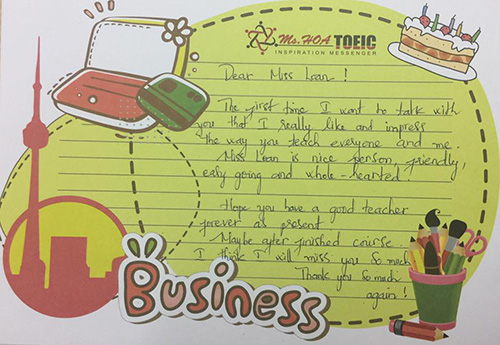 Ms.HOA TOEIC
INSPIRATION MESSENGER
Dear Miss Loan !
The first time I want to talk with
you that I really like and impress
the way you teach everyone and me.
Miss Loan is nice person, friendly,
easy going and whole-hearted.
Hope you have a good teacher
forever as present
Maybe after finished course.
I think I will miss you so much
Thank you so much
again !
Business